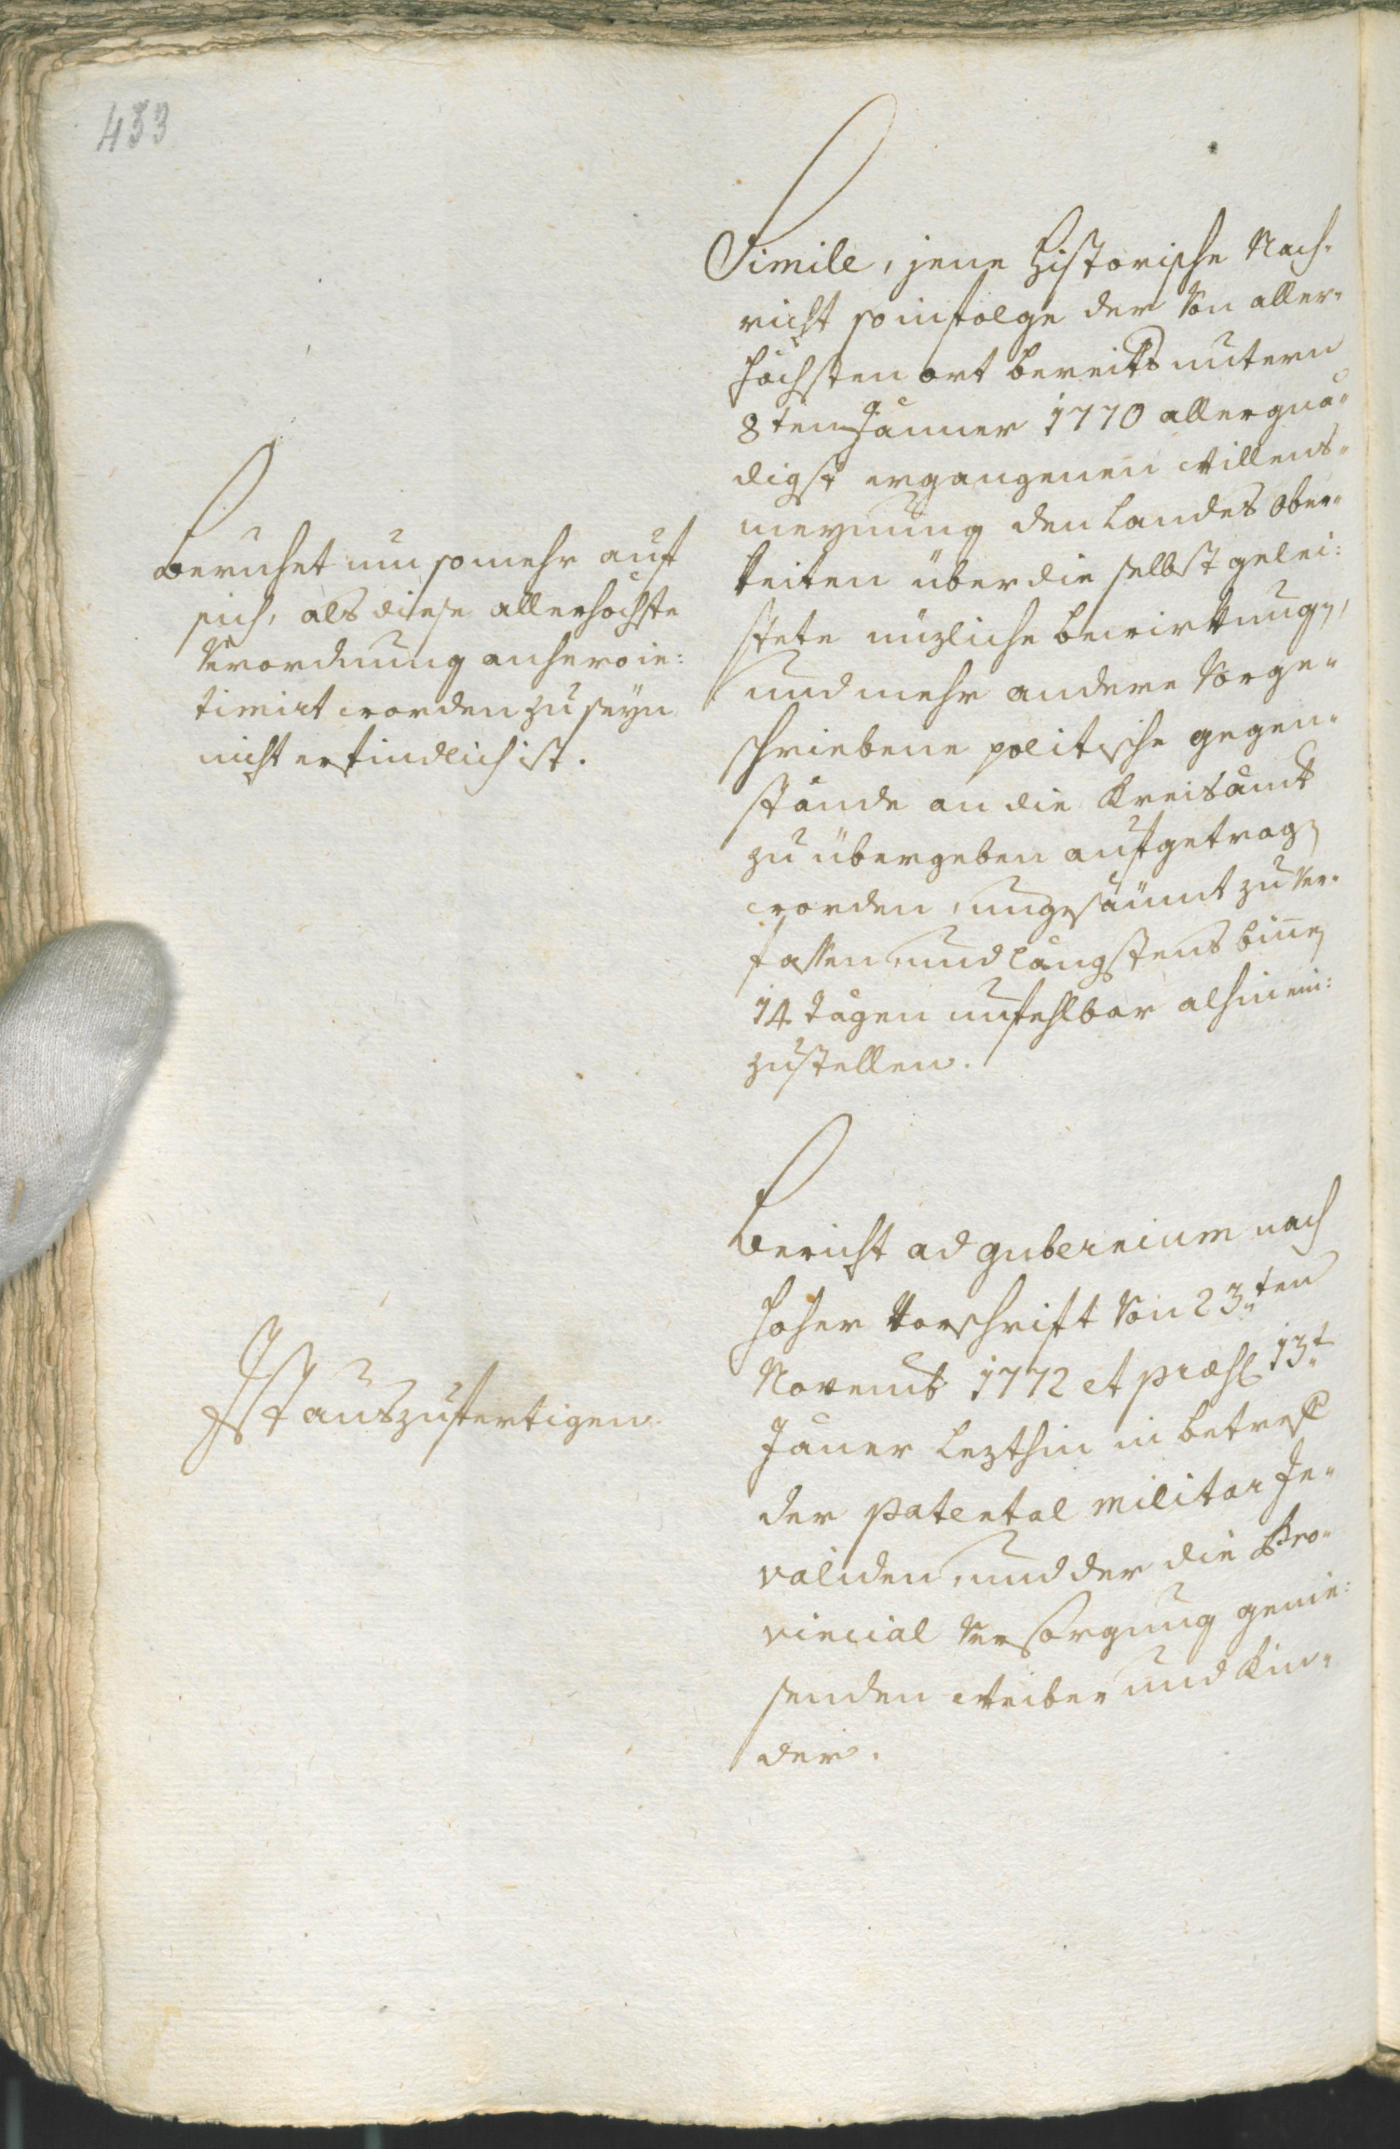 433
Simile, jene Historische Nach-
richt so infolge der Von aller-
höchsten ort bereits untern
8ten Jänner 1770 allergnä-
digst ergangenen Willens-
meynung den Landes Ober-
keiten über die selbst gelei:
stete nüzliche bewirkung,
und mehr andere Vorge-
schriebene politische gegen-
stände an die Kreisämt
zu übergeben aufgetrag
worden, ungesäumt zu Ver-
fassen und längstens binen
14 tägen unfehlbar alhin ein:
zustellen.
Beruhet um so mehr auf
sich, als diese allerhöchste
Verordnung anhero in:
timirt worden zu seyn
nicht erfindlich ist.
Bericht ad gubernium nach
hoher Vorschrift Von 23ten
Novemb 1772 et præs 13t
Jäner lezthin in betref
der Patental militar In-
validen, und der die Pro-
vincial Versorgung genie:
senden Weiber und Kin-
der.
Ist auszufertigen